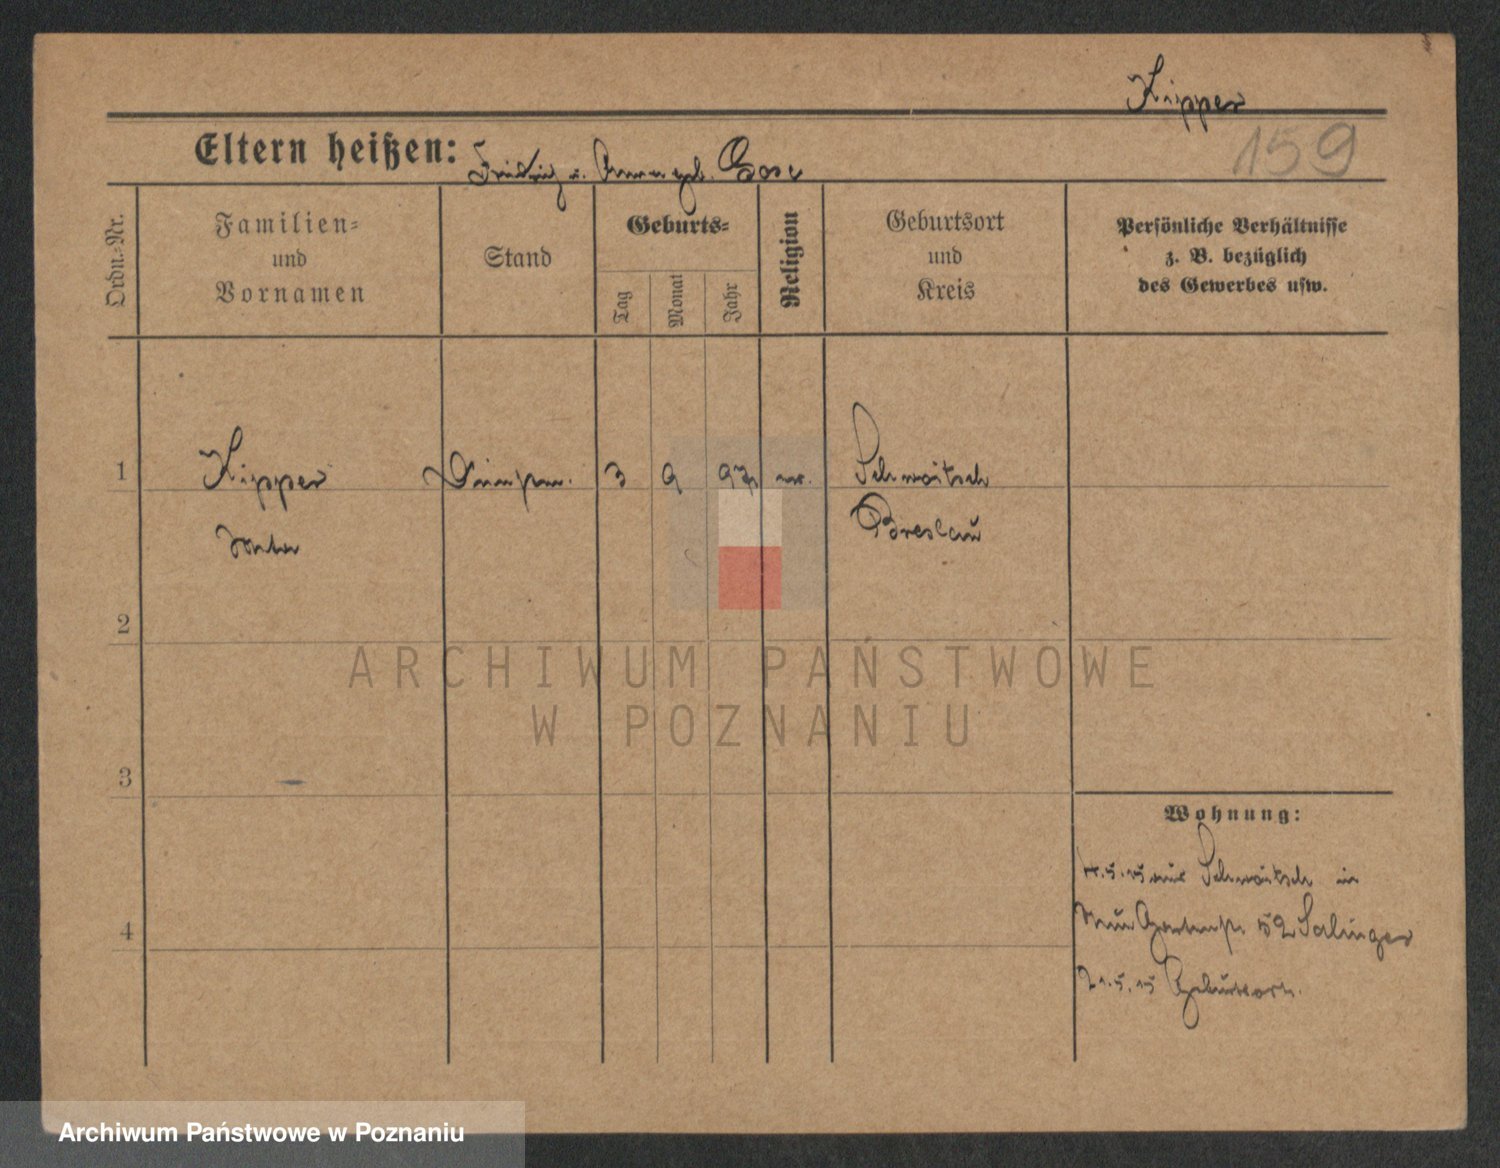 Kipper
159
Eltern heißen: Friedrich u. Anna geb. Gose
Ordn.-Nr.
Familien-
und
Vornamen
Stand
Geburts-
Tag
Monat
Jahr
Religion
Geburtsort
und
Kreis
Persönliche Verhältnisse
z. B. bezüglich
des Gewerbes usw.
1
Kipper 3 9 97 ev. Schwoitsch
Breslau
2
ARCHIWUM PAŃSTWOWE
W POZNANIU
3
Wohnung:
4.5.15 aus Schwoitsch in
Neue Gartenstr. 52 Salinger
4
21.5.15 Geburtsort.
Archiwum Państwowe w Poznaniu